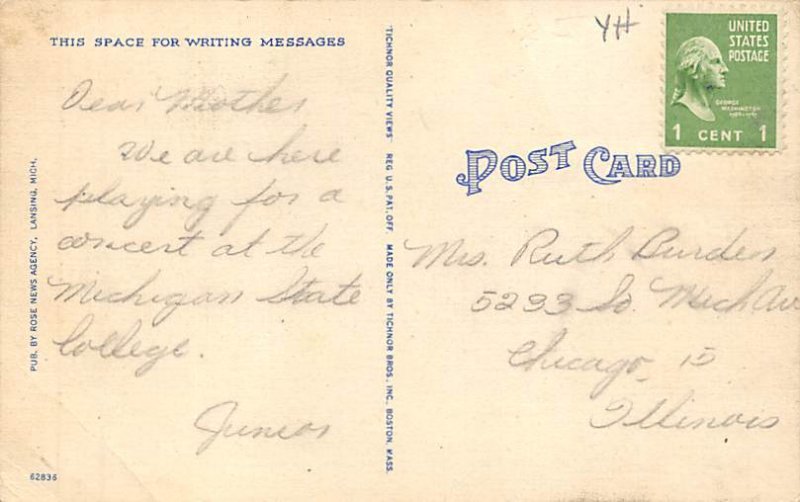 THIS SPACE FOR WRITING MESSAGES
Dear Mother
We are here
playing for a
concert at the
Michigan State
College.
Junior
62836
PUB. BY ROSE NEWS AGENCY, LANSING, MICH.
"TICHNOR QUALITY VIEWS" REG. U.S. PAT. OFF. MADE ONLY BY TICHNOR BROS., INC., BOSTON, MASS.
YH
UNITED
STATES
POSTAGE
GEORGE
WASHINGTON
1 CENT 1
POST CARD
Mrs. Ruth Burden
5293 So. Mich Av
Chicago, 15
Illinois